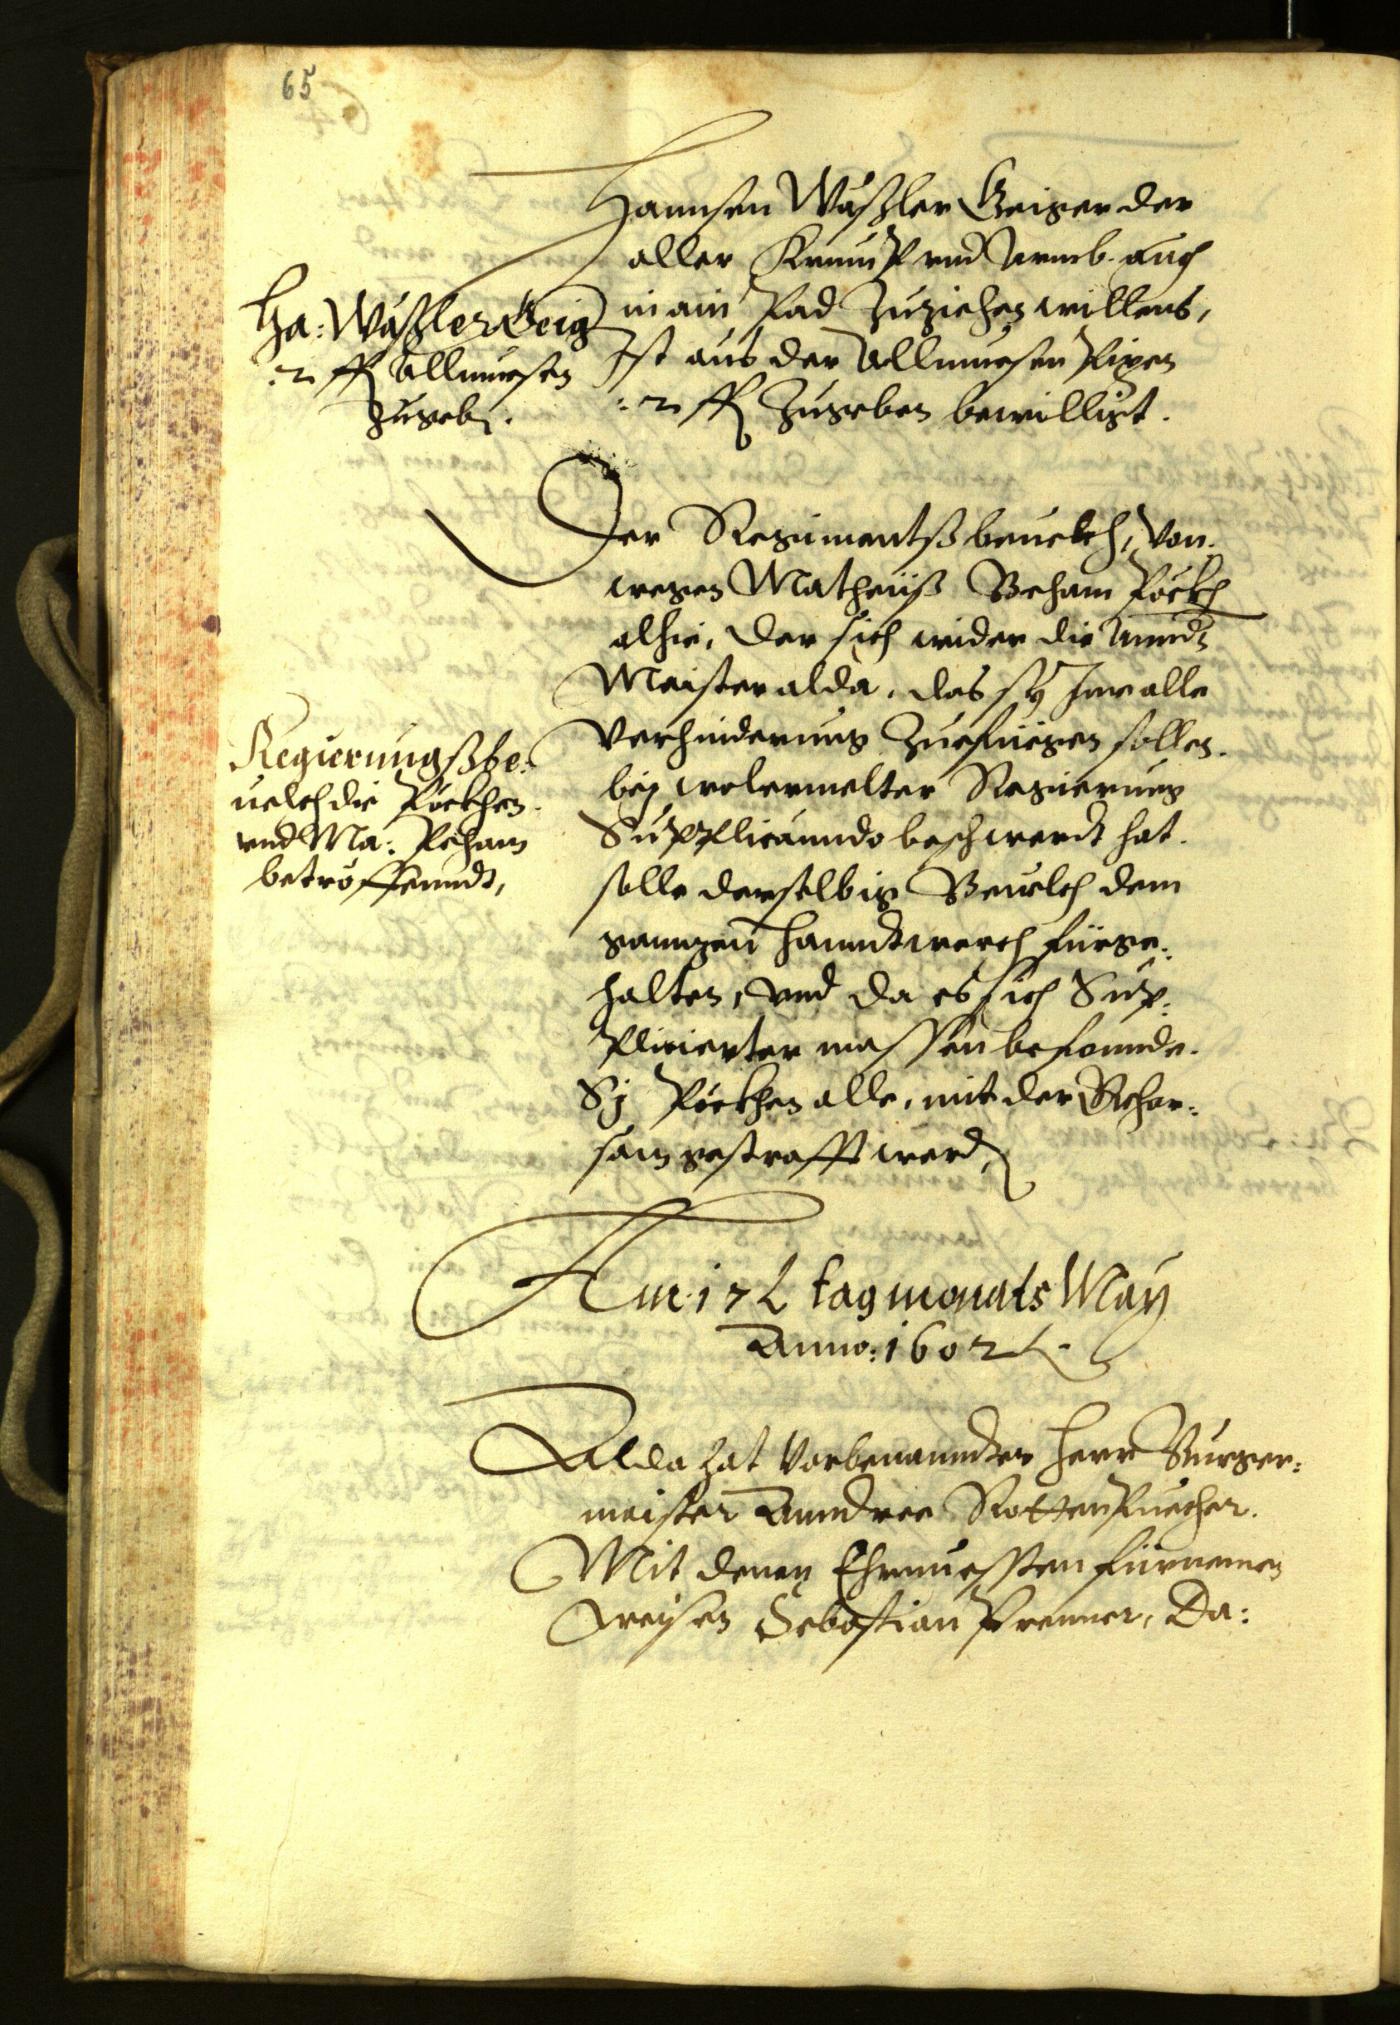 65
Hannsen Wäßler Geiger der
aller Krump vnd Armb. auch
in ain Pad zuziehen willens,
Ist aus der Allmuesen Pixen
.2. fl zugeben bewilligt.
Ha: Wäßler Geig
.2. fl Allmuesen
zugeb.
Der Regimentß beuelch, von
wegen Matheüß Beham Pöckh
alhie, der sich wider die
Maister alda, das sy Ime alle
verhinderung Zuefüegen sollen.
bey wolermelter Regierung
Supplicanndo beschwerdt hat.
solle derselbig Beuelch dem
ganngen Hanndtwerch fürge:
halten, vnd da es sich Sup:
plicierter massen befonnde.
Sy Pöckhen alle, mit der Gehor:
sam gestrafft werd
Regierungß be:
uelch die Pöckhen
vnd Ma: Peham
betröffenndt,
Am 17 L tag monats May
Anno: 1602
Alda hat vorbenanndter Herr Burger:
maister Anndree Rottenpuecher.
Mit denen Ehrnuessten fürnemen
weysen Sebastian Prenner, Da: